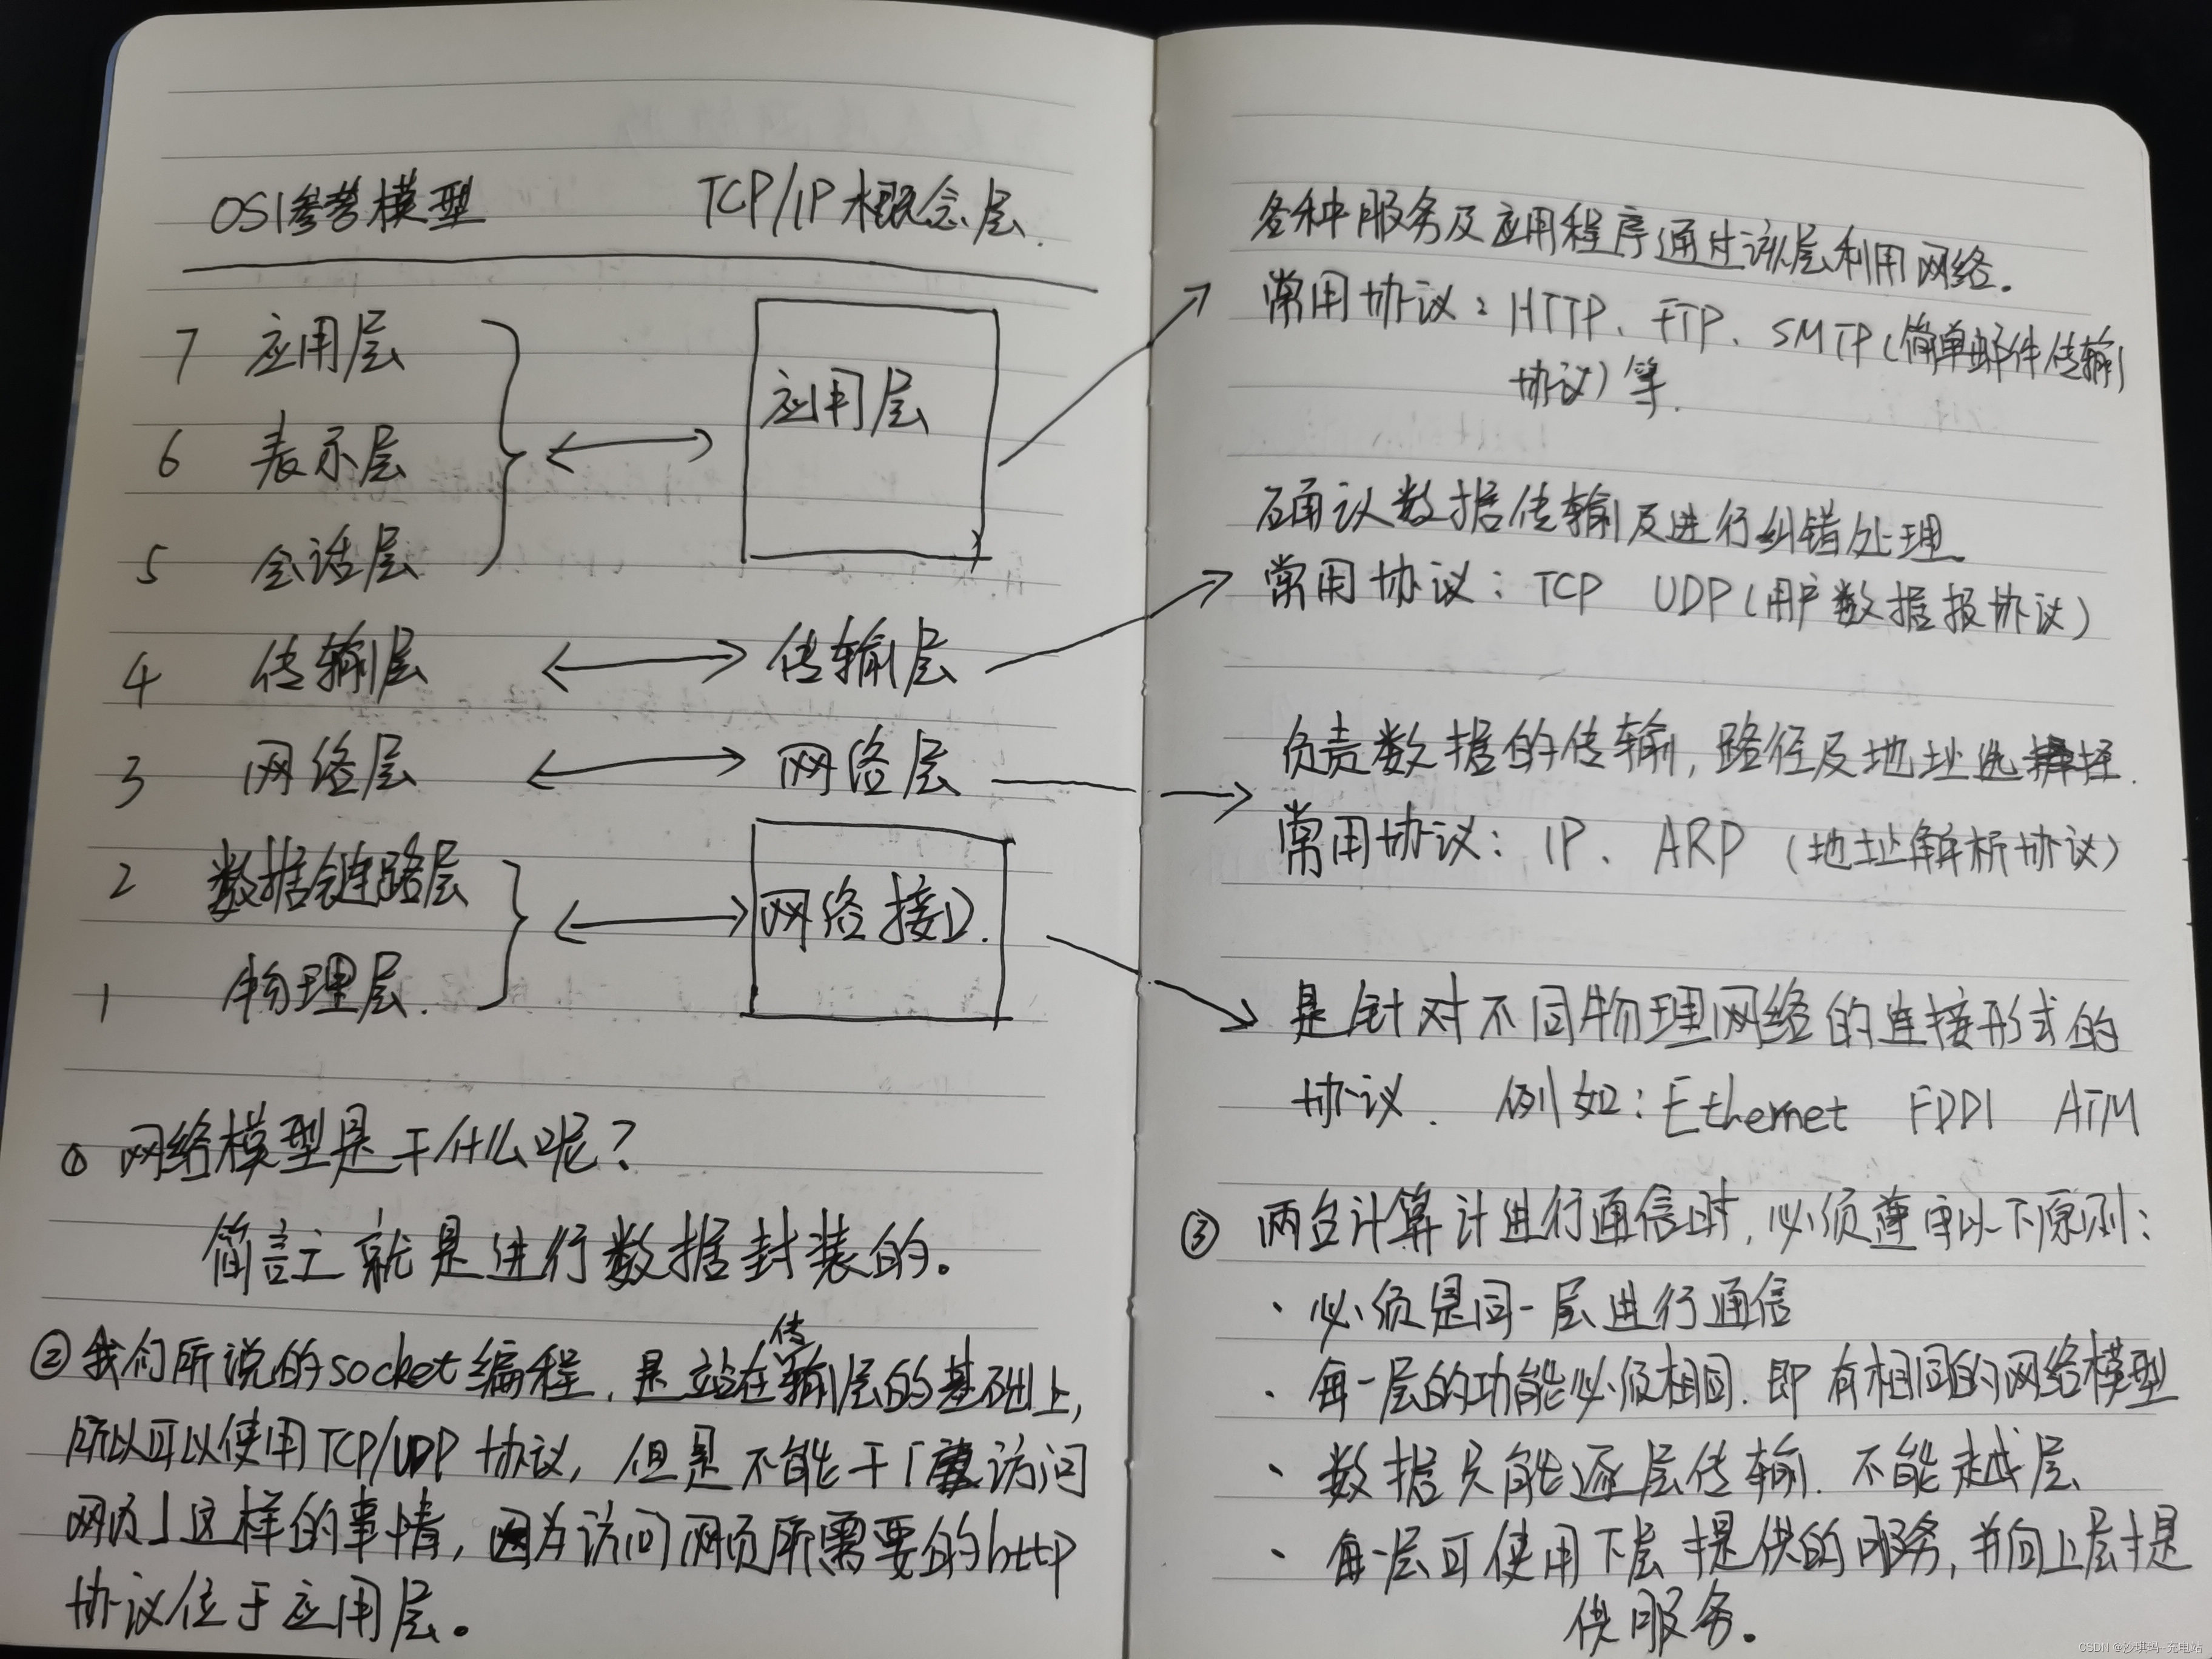 OSI参考模型 TCP/IP概念层.
7 应用层
6 表示层
5 会话层
应用层
4 传输层 传输层
3 网络层 网络层
2 数据链路层
1 物理层.
网络接口.
① 网络模型是干什么呢?
简言之 就是进行数据封装的。
② 我们所说的socket编程, 是站在传输层的基础上,
所以可以使用TCP/UDP 协议, 但是不能干「访问
网页」这样的事情, 因为访问网页所需要的http
协议位于应用层。
各种服务及应用程序通过该层利用网络。
常用协议: HTTP、FTP、SMTP(简单邮件传输
协议)等.
确认数据传输及进行纠错处理.
常用协议: TCP UDP(用户数据报协议)
负责数据的传输, 路径及地址选择.
常用协议: IP、ARP (地址解析协议)
是针对不同物理网络的连接形式的
协议. 例如: Ethernet FDDI ATM
③ 两台计算计进行通信时, 必须遵守以下原则:
、必须是同一层进行通信
、每一层的功能必须相同. 即有相同的网络模型
、数据只能逐层传输. 不能越层.
、每一层可使用下层提供的服务, 并向上层提
供服务。
CSDN @沙琪玛-充电站